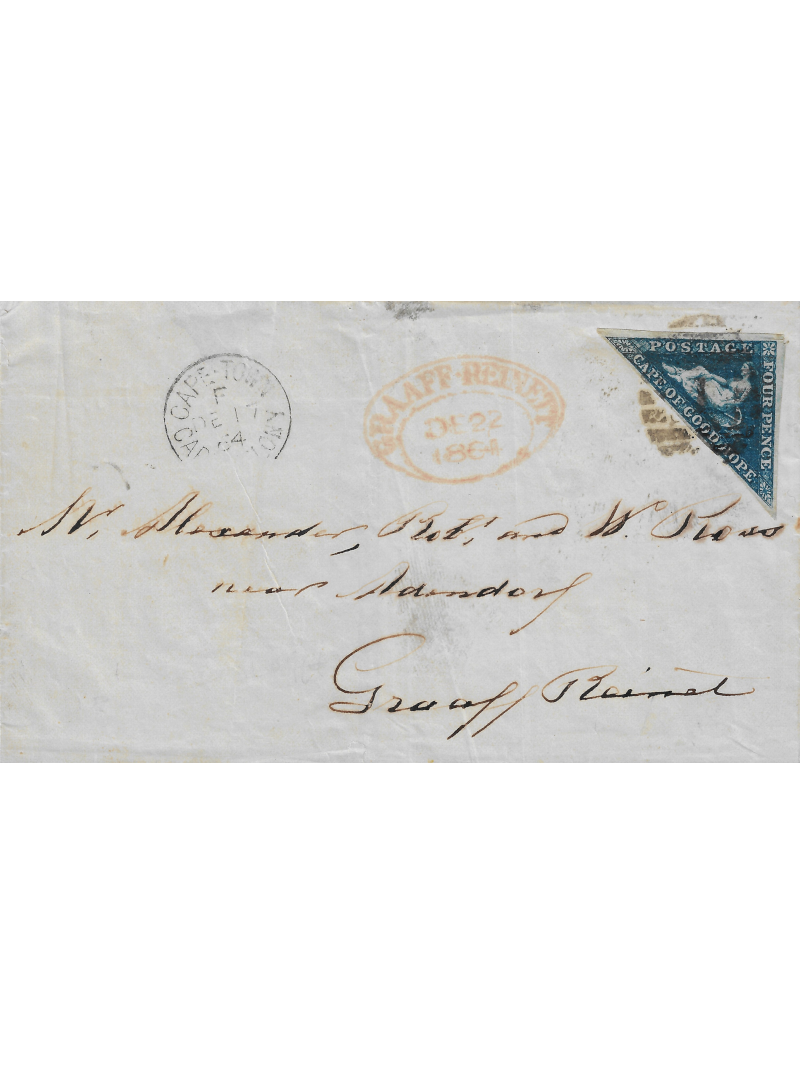 CAPE·TOWN AND
DE 17
64
GRAAFF·REINETT
DE 22
1864
POSTAGE
FOUR PENCE
CAPE·OF·GOOD HOPE
Mr. Alexander, Robt. and W. Ross
near Adendorf
Graaff Reinet